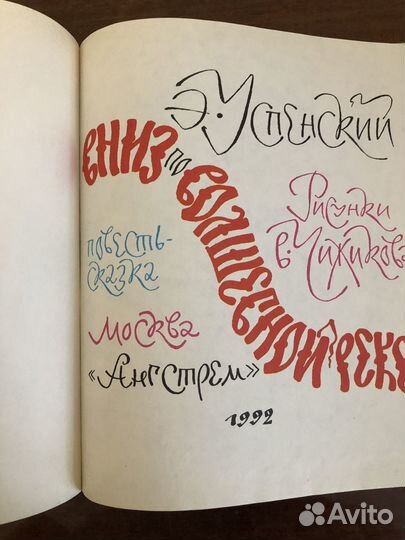 Э. Успенский
вниз по волшебной реке
Рисунки
В. Чижикова
повесть-
сказка
Москва
«Ангстрем»
1992
Avito